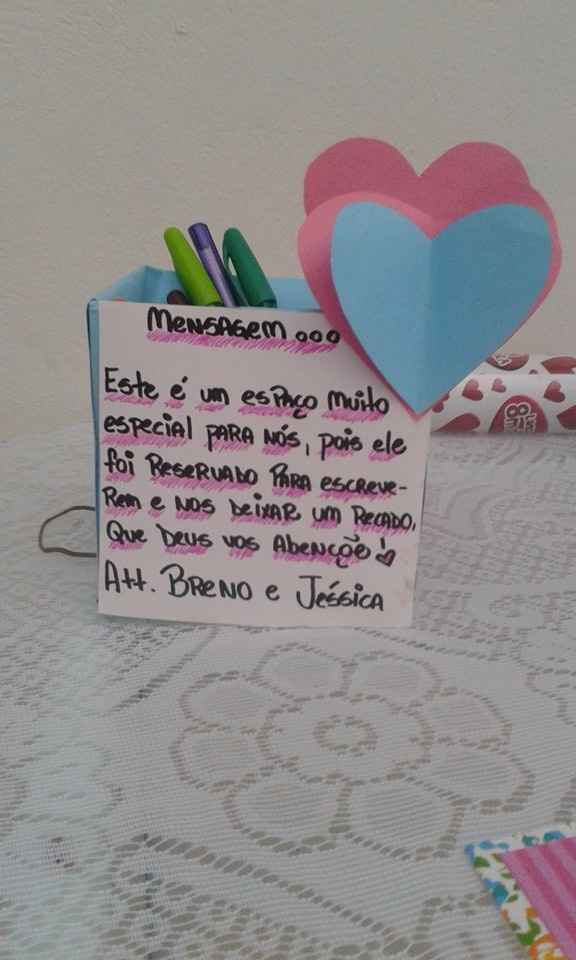 Mensagem...
Este é um espaço muito
especial para nós, pois ele
foi reservado para escreve-
rem e nos deixar um recado,
Que Deus vos abençõe!
Att. Breno e Jéssica